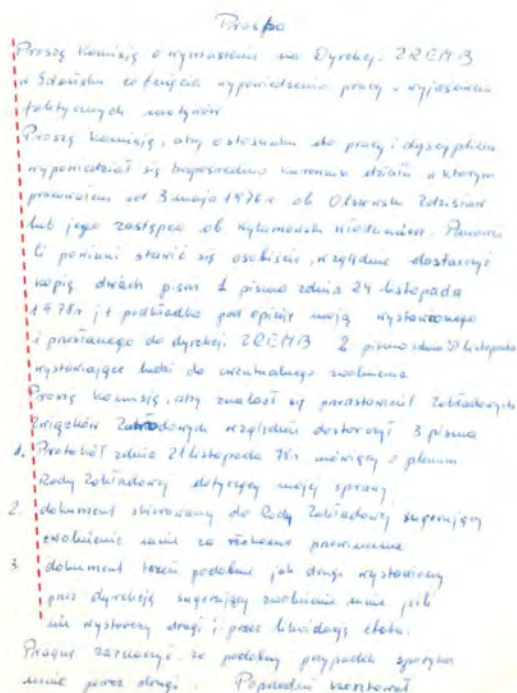 Prośba
Proszę Komisję o wymuszenie na Dyrekcji ZREMB
w Gdańsku cofnięcia wypowiedzenia pracy i wyjaśnienia
faktycznych motywów
Proszę Komisję, aby o stosunku do pracy i dyscyplinie
wypowiedział się bezpośrednio kierownik działu w którym
pracowałem od 3 maja 1976 r ob Olszewski Zdzisław
lub jego zastępca ob Włodzimierz. Panowie
Ci powinni stawić się osobiście, względnie dostarczyć
kopię dwóch pism 1 pismo z dnia 24 listopada
1978r. j t podkładka pod opinię moją wystawionego
i przesłanego do dyrekcji ZREMB 2 pismo z dnia listopada
wystawiające ludzi do ewentualnego zwolnienia
Proszę Komisję, aby znalazł się przedstawiciel Zakładowych
Związków Zakładowych względnie dostarczył 3 pisma
1. Protokół z dnia 21 listopada 78r mówiący o plenum
Rady Zakładowej dotyczący mojej sprawy
2. dokument skierowany do Rady Zakładowej sugerujący
zwolnienie mnie za rzekome przewinienia
3. dokument trzeci podobnie jak drugi wystawiony
przez dyrekcję sugerujący zwolnienie mnie jeśli
nie wystarczy drugi i przez likwidację etatu.
Pragnę zaznaczyć że podobny przypadek spotyka
mnie poraz drugi. Poprzedni kosztował